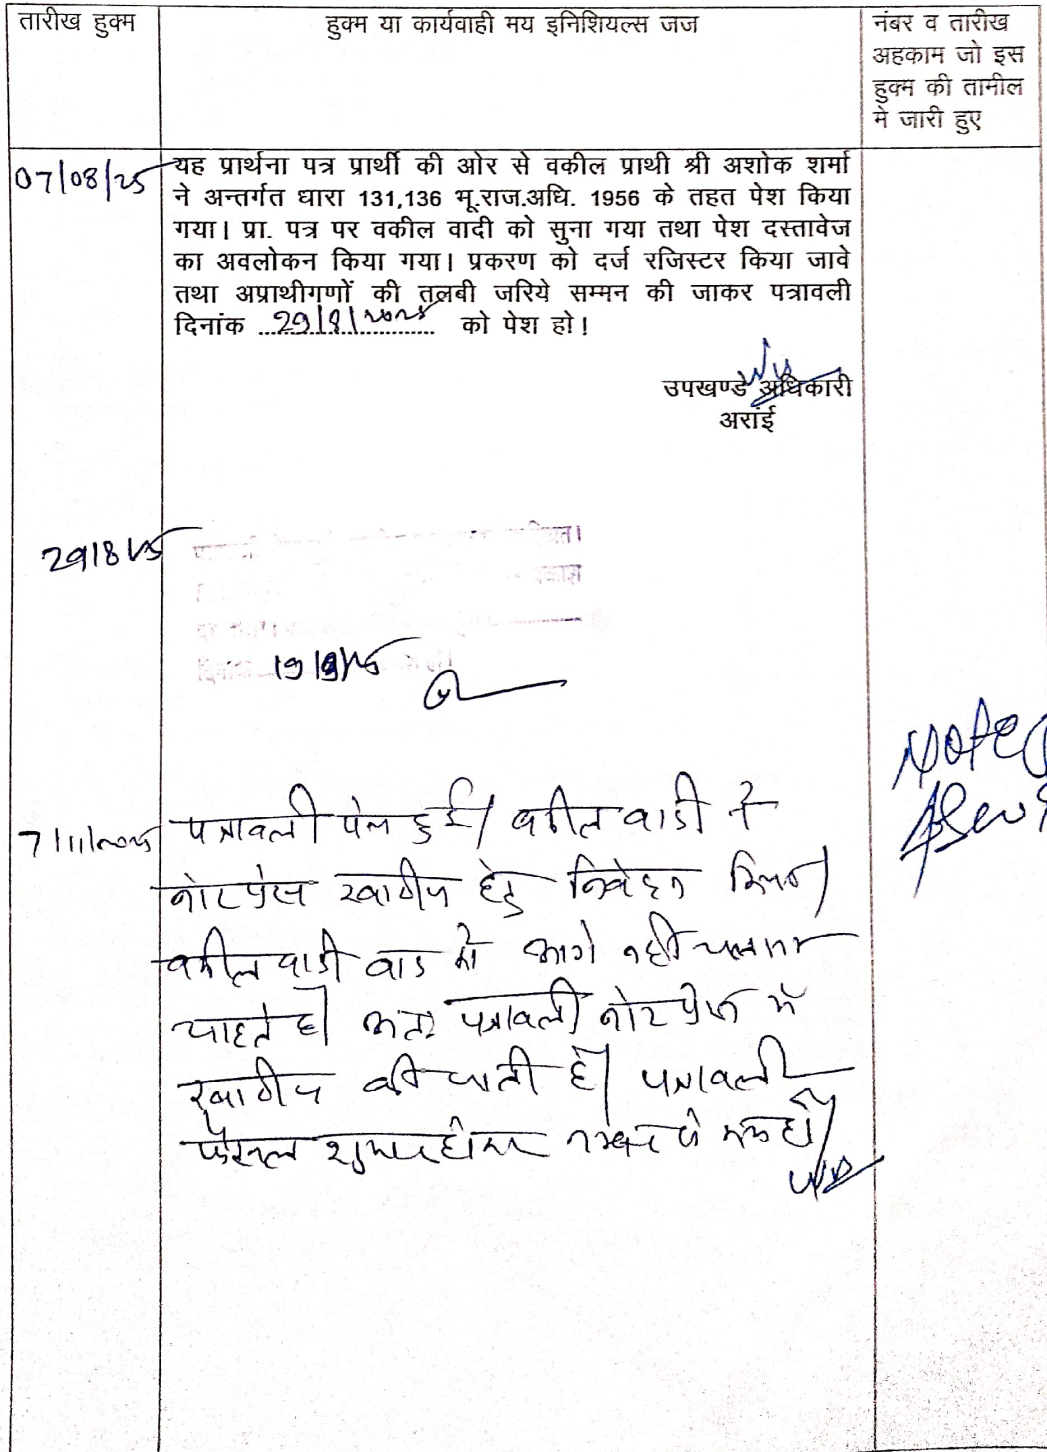 तारीख हुक्म
हुक्म या कार्यवाही मय इनिशियल्स जज
नंबर व तारीख
अहकाम जो इस
हुक्म की तामील
मे जारी हुए
07/08/25
यह प्रार्थना पत्र प्रार्थी की ओर से वकील प्राथी श्री अशोक शर्मा
ने अन्तर्गत धारा 131,136 भू.राज.अधि. 1956 के तहत पेश किया
गया। प्रा. पत्र पर वकील वादी को सुना गया तथा पेश दस्तावेज
का अवलोकन किया गया। प्रकरण को दर्ज रजिस्टर किया जावे
तथा अप्राथीगणों की तलबी जरिये सम्मन की जाकर पत्रावली
दिनांक 29/8/2025 को पेश हो!
उपखण्ड अधिकारी
अरांई
29/8/25
19/9/25
Noted
7/11/2025
पत्रावली पेश हुई। वकील वादी ने
नोटप्रेस खारीज हेतु निवेदन किया।
वकील वादी वाद को आगे नहीं चलाना
चाहते है। अतः पत्रावली नोटप्रेस में
खारीज की जाती है। पत्रावली
फैसल शुमार होकर नम्बर से कम हो।